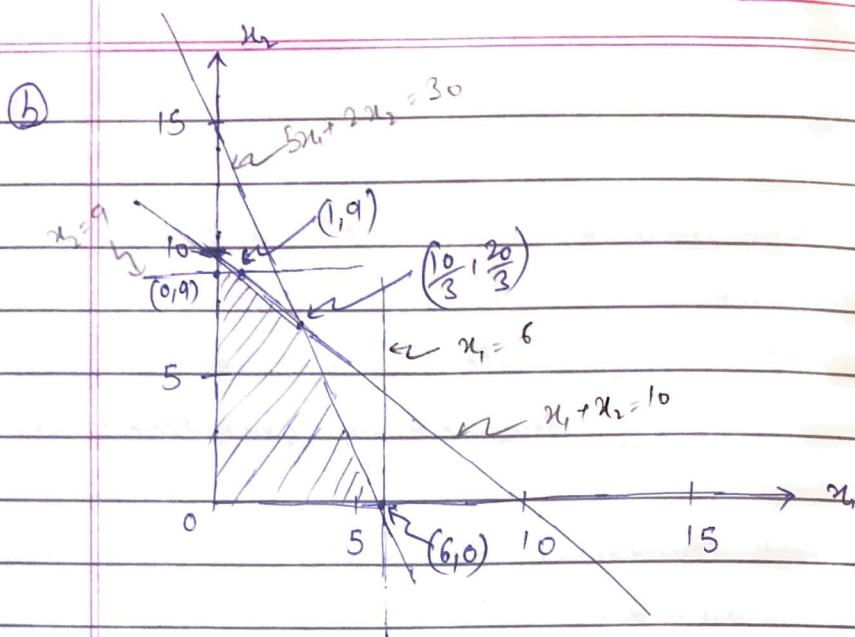 x₂
b
15
5x₁+2x₂=30
x₂=9
10
(1,9)
(0,9)
(10/3, 20/3)
x₁=6
5
x₁+x₂=10
0
5
(6,0)
10
15
x₁